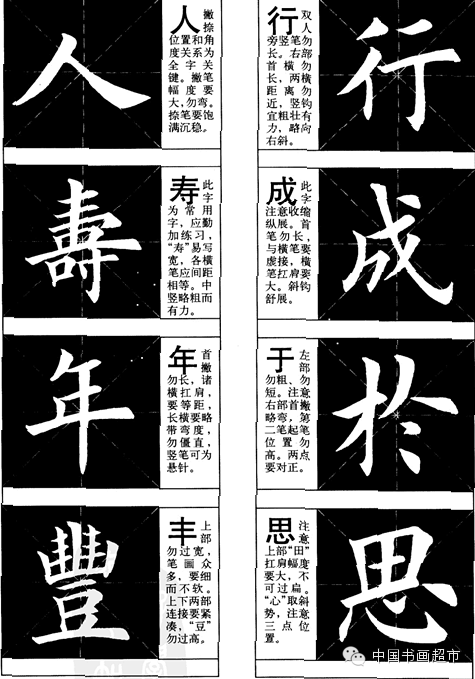 人
人 撇捺
位置和角
度关系为
全字关
键。撇笔
幅度要
大,勿弯。
捺笔要饱
满沉稳。
壽
寿 此字
为常用
字,应勤
加练习,
“寿”易写
宽,各横
笔应间距
相等。中
竖略粗而
有力。
年
年 首撇
勿长,诸
横扛肩,
要等距,
长横要略
带弯度,
勿僵直,
竖笔可为
悬针。
豐
丰 上部
勿过宽,
笔画众
多,要细
而不软。
上下两部
连接要紧
凑,“豆”
勿过高。
行 双人
旁竖笔勿
长。右部
首横勿
长,两横
距离勿
近,竖钩
宜粗壮有
力,略向
右斜。
行
成 此字
注意收缩
纵展。首
笔勿长,
与横笔要
虚接,横
笔扛肩要
大。斜钩
舒展。
成
于 左部
勿粗、勿
短。注意
右部首撇
略弯,第
二笔起笔
位置勿
高。两点
要对正。
於
思 注意
上部“田”
扛肩幅度
要大,不
可过扁。
“心”取斜
势,注意
三点位
置。
思
中国书画超市